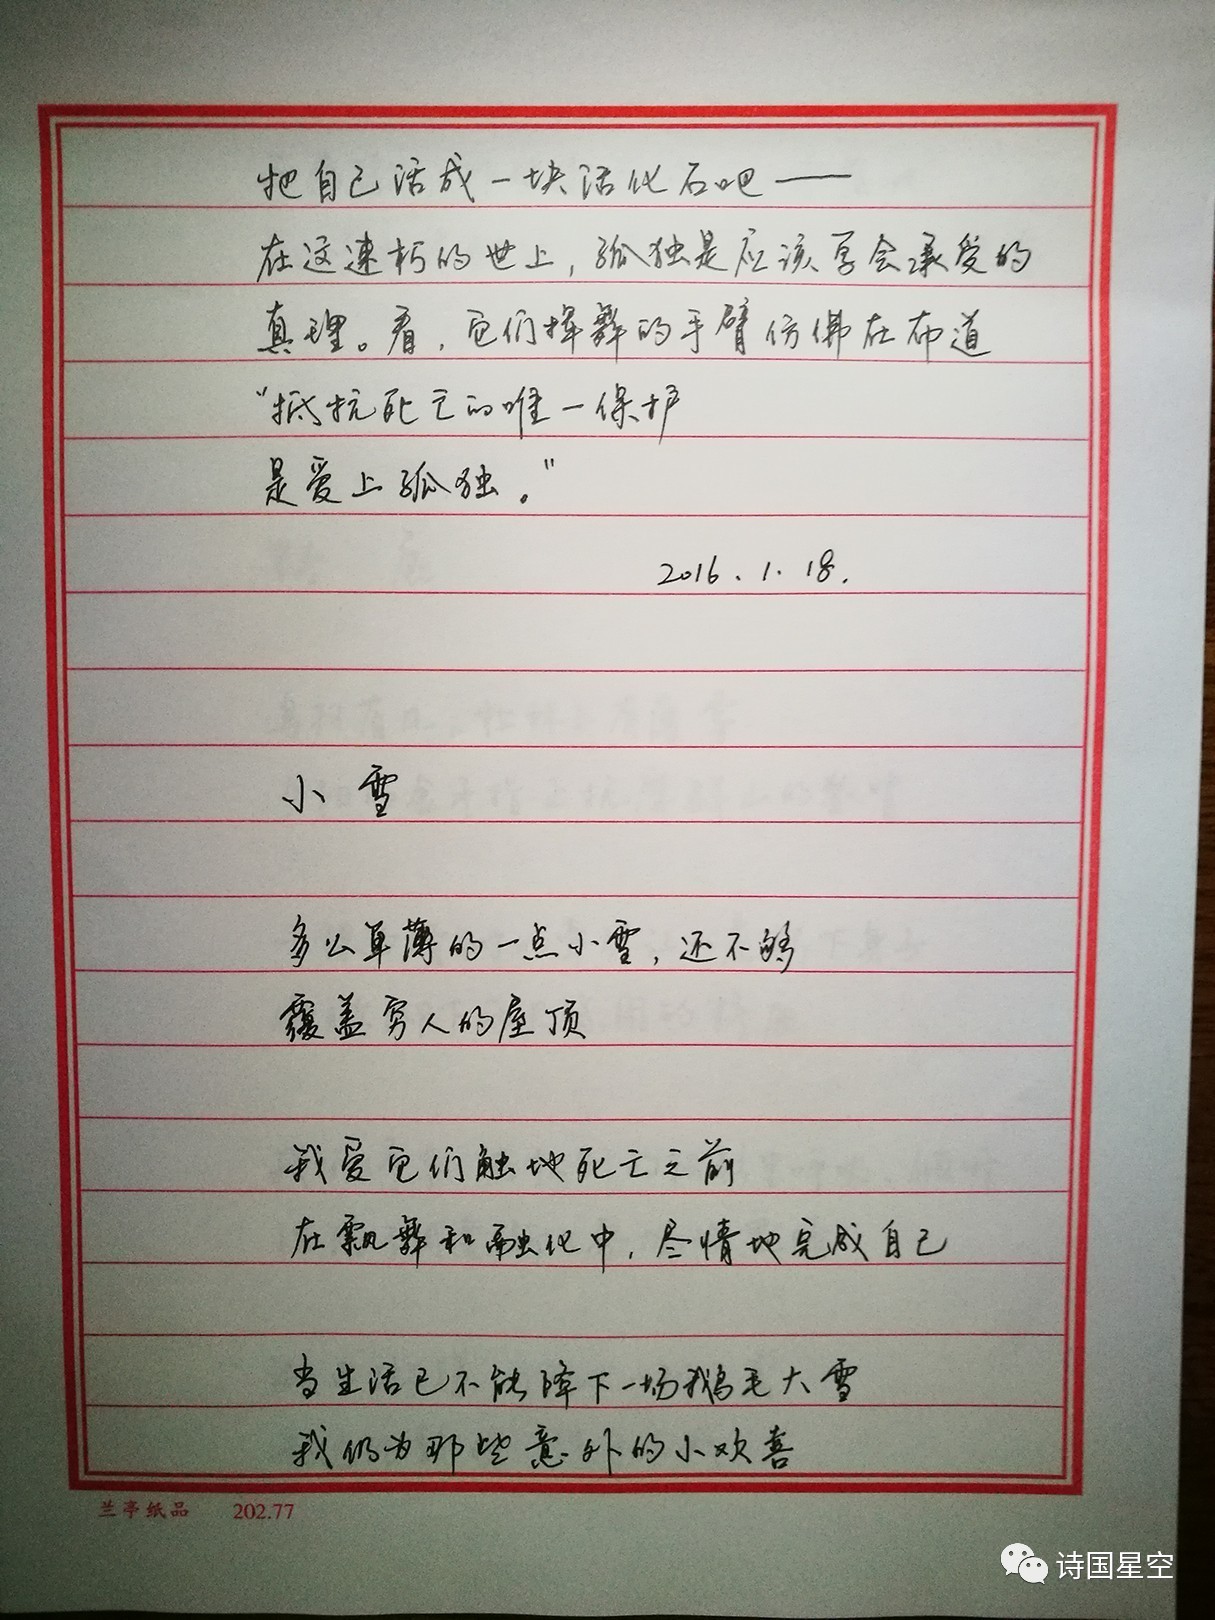 把自己活成一块活化石吧——
在这速朽的世上，孤独是应该学会承受的
真理。看，它们挥舞的手臂仿佛在布道
“抵抗死亡的唯一保护
是爱上孤独。”
2016.1.18.
小雪
多么单薄的一点小雪，还不够
覆盖穷人的屋顶
我爱它们触地死亡之前
在飘舞和融化中，尽情地完成自己
当生活已不能降下一场鹅毛大雪
我仍为那些意外的小欢喜
兰亭纸品 202.77
诗国星空